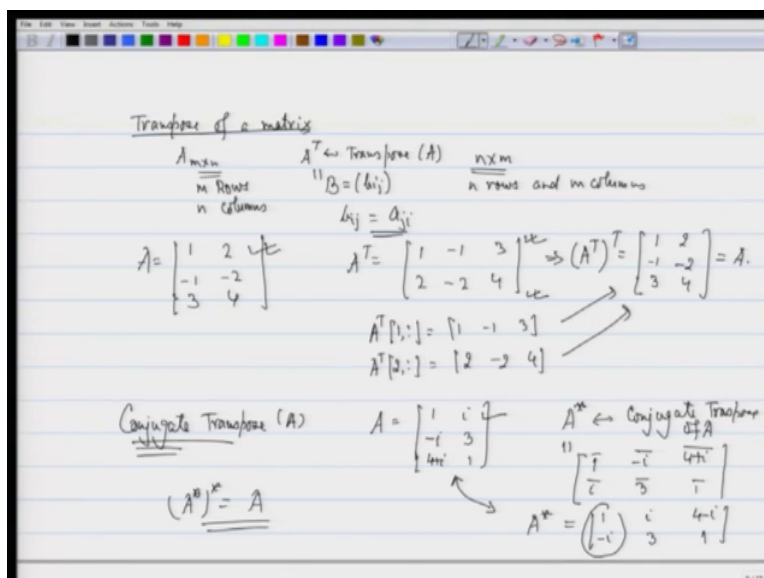 File Edit View Insert Actions Tools Help
Transpose of a matrix
A_{m×n} A^T ← Transpose (A) n×m
m Rows || B = (b_{ij}) n rows and m columns
n columns
b_{ij} = a_{ji}
A = [1 2; -1 -2; 3 4] A^T = [1 -1 3; 2 -2 4] ⇒ (A^T)^T = [1 2; -1 -2; 3 4] = A.
A^T[1,:] = [1 -1 3]
A^T[2,:] = [2 -2 4]
Conjugate Transpose (A) A = [1 i; -i 3; 4+i 1] A^* ← Conjugate Transpose
of A
|| [1̅ -i̅ 4+i̅; i̅ 3̅ 1̅]
(A^*)^* = A
A^* = [1 i 4-i; -i 3 1]